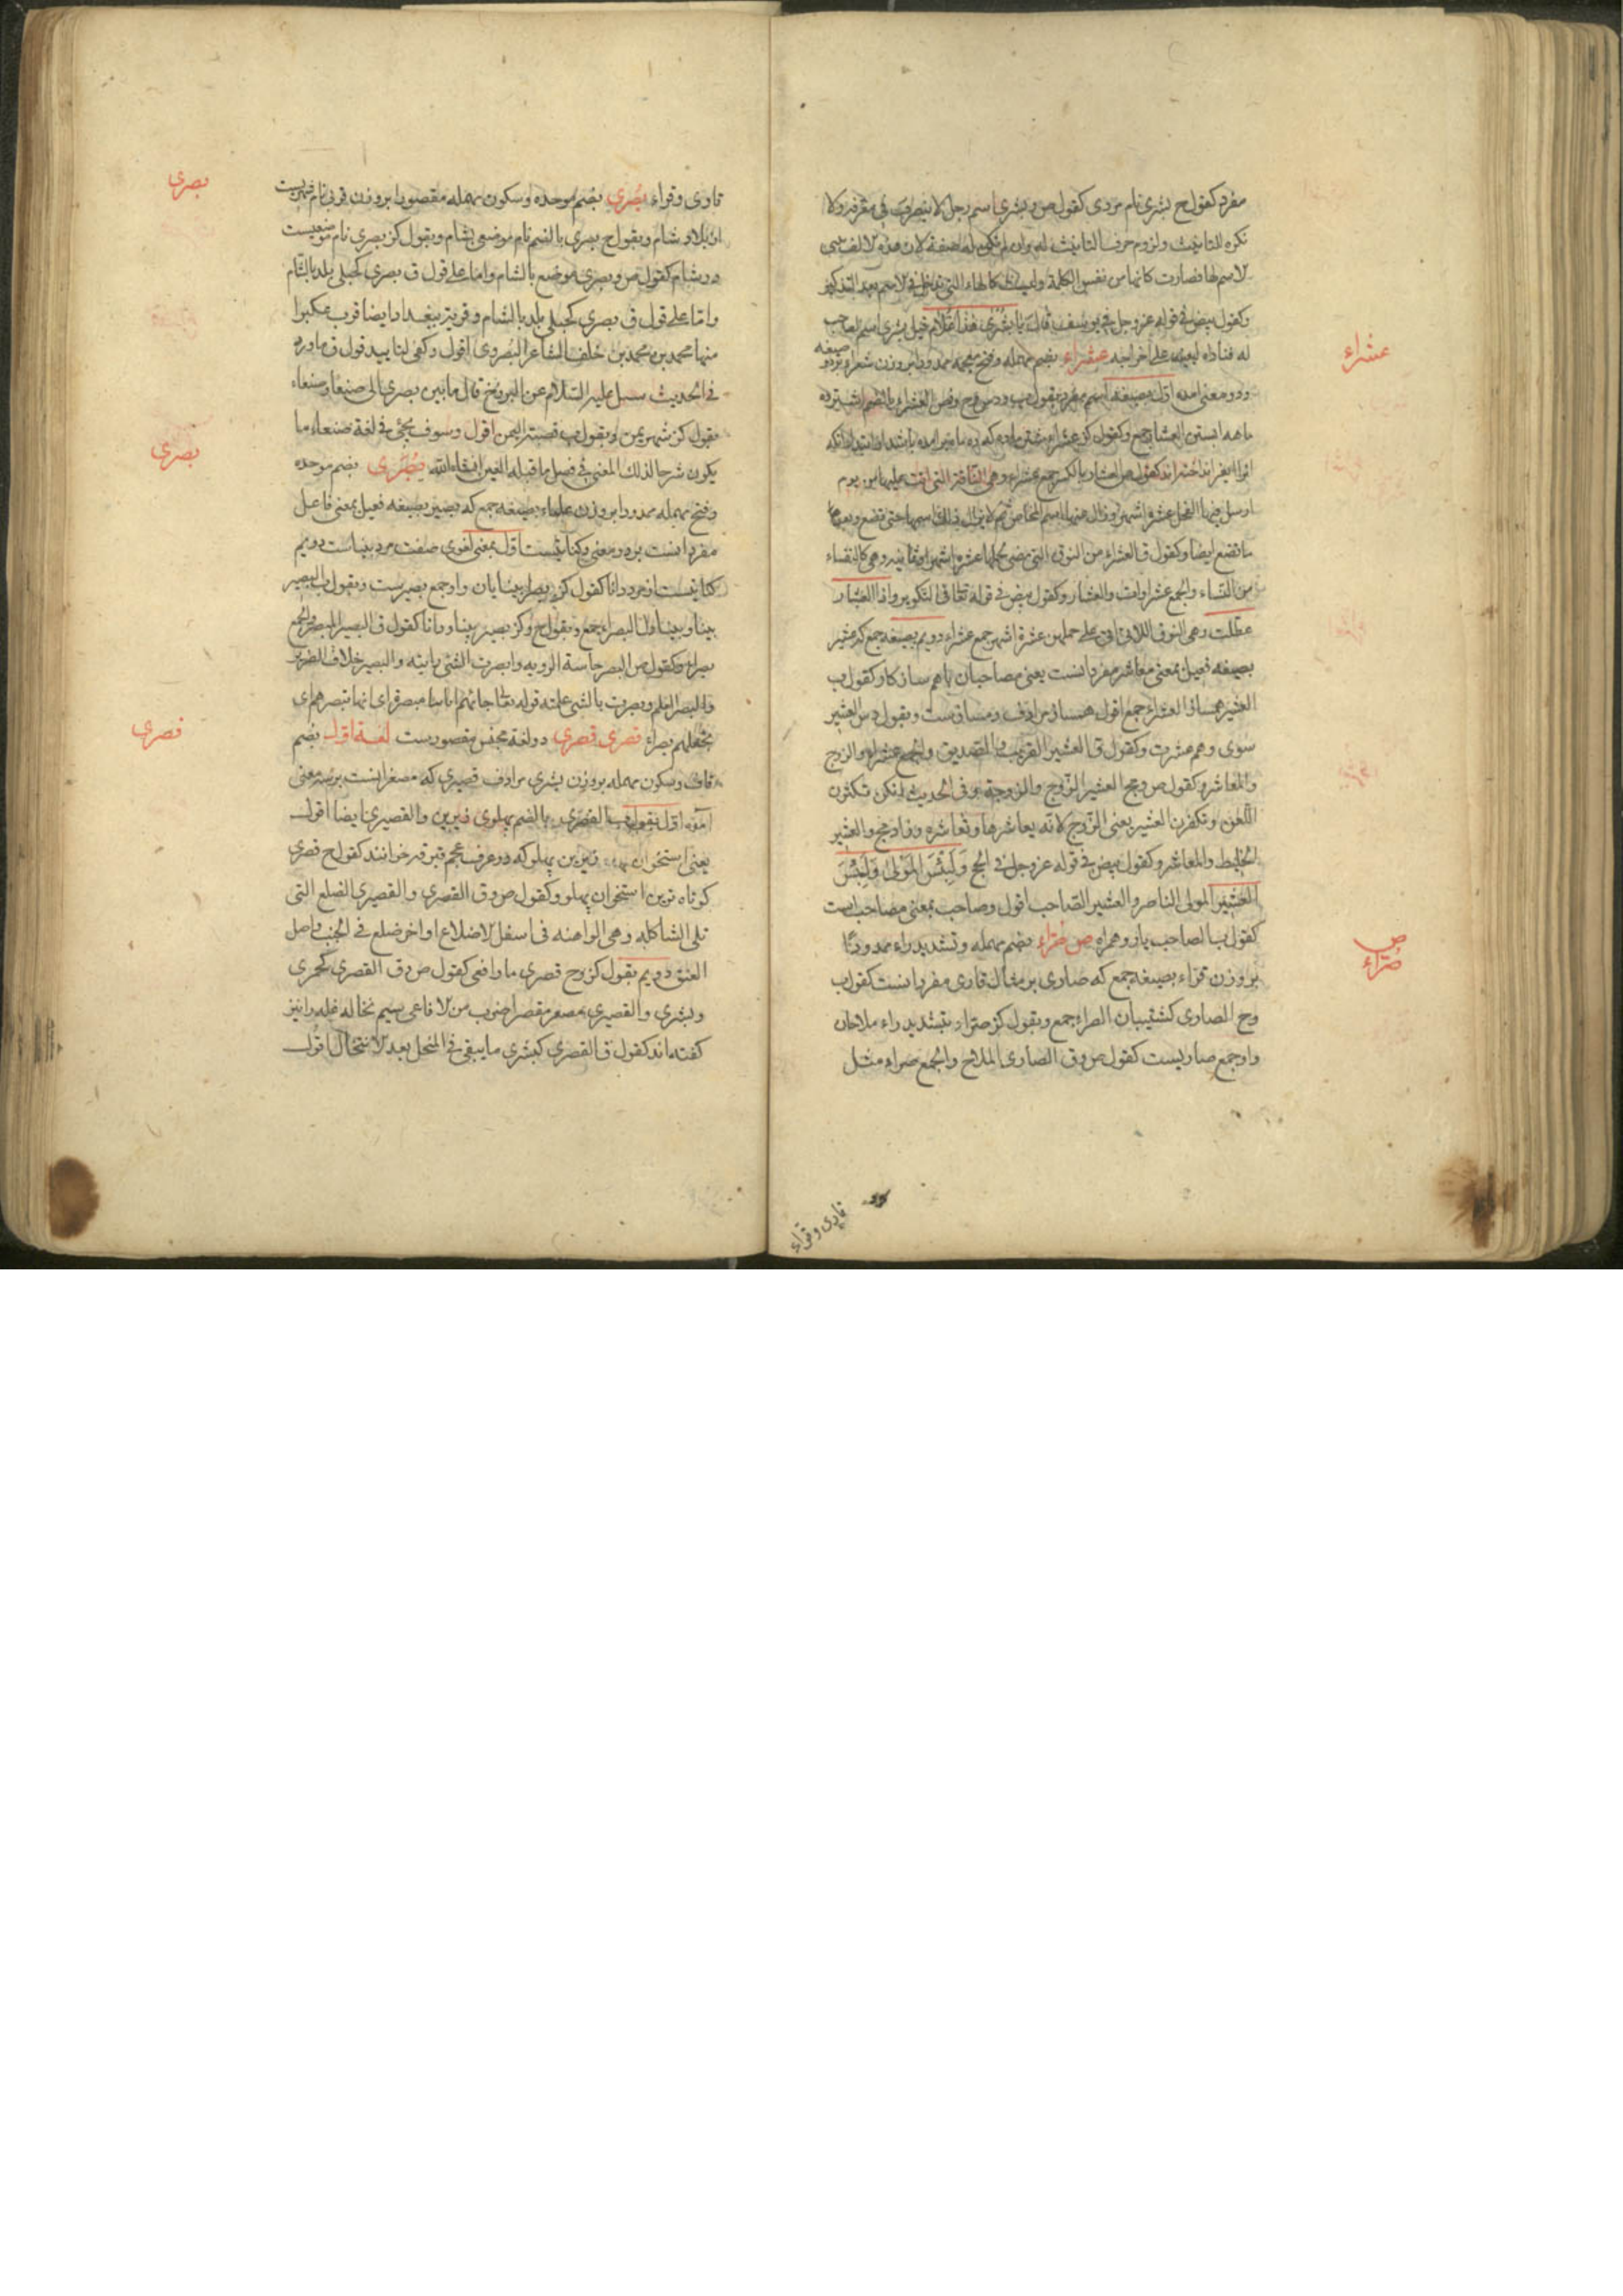 مفرد کقول ح بشری نام مردی کقول ص وبشری اسم رجل لا ینصرف فی معرفة ولا
نکره للتانیث ولزوم حرف التانیث له وان لم تکن له صفة لان هذه الالف یبنی
الاسم لها فصارت کانها من نفس الکلمة ولیست کالهاء التی تدخل فی الاسم بعد التذکیر
وکقول بیض فی قوله عزوجل فی یوسف قال یا بشری هذا غلام قیل بشری اسم لصاحب
له فناداه لیعینه علی اخراجه عشراء بضم مهمله وفتح معجمه ممدودا بر وزن شعراء بر دو صیغه
ودو معنی امده اول بصیغه اسم مفرد
ماهه ابستن العشار جمع وکقول کز عشراء شتر ماده که ده ماه بر امده باشد
کقول ص العشار بالکسر جمع عشراء وهی الناقة التی اتت علیها من یوم
ارسل فیها الفحل عشرة اشهر وزال عنها اسم المخاض ثم لا یزال ذلک اسمها حتی تضع وبعد
ما تضع ایضا وکقول ق العشراء من النوق التی مضی لحملها عشرة اشهر او ثمانیه وهی کالنفساء
من النساء والجمع عشراوات والعشار وکقول بیض فی قوله تعالی فی التکویر واذا العشار
عطلت وهی النوق اللاتی اتی علی حملهن عشرة اشهر جمع عشراء دویم بصیغه جمع که عشیر
بصیغه فعیل بمعنی معاشر مفرد انست یعنی مصاحبان باهم سازکار کقول ب
العشیر همساز العشراء جمع اقول همساز مرادف ومساوقست وبقول دس العشیر
شوی وهم عشرت وکقول ق العشیر القریب والصدیق والجمع عشراء والزوج
والمعاشر وکقول ص ومج العشیر الزوج والزوجة وفی الحدیث انکن تکثرن
اللعن وتکفرن العشیر یعنی الزوج لانه یعاشرها وتعاشره وزاد مج والعشیر
الخلیط والمعاشر وکقول بیض فی قوله عزوجل فی الحج ولبئس المولی ولبئس
العشیر المولی الناصر والعشیر الصاحب اقول وصاحب بمعنی مصاحب است
کقول ب الصاحب یار وهمراه ص صراء بضم مهمله وتشدید راء ممدودا
بر وزن قراء بصیغه جمع که صاری بر مثال قاری مفرد انست کقول ب
وح الصاری کشتیبان الصراء جمع وبقول کز صراء بتشدید راء ملاحان
واو جمع صاریست کقول ص وق الصاری الملاح والجمع صراء مثل
قاری وقراء
عشراء
ص
صراء
قاری وقراء بصری بضم موحده وسکون مهمله مقصورا بر وزن قربی نام شهریست
از بلاد شام وبقول ح بصری بالضم نام موضعی بشام وبقول کز بصری نام موضعیست
در شام کقول ص وبصری موضع بالشام واما علی قول ق بصری کحبلی بلد بالشام
واما علی قول ق بصری کحبلی بلد بالشام وقریة ببغداد ایضا قرب عکبرا
منها محمد بن محمد بن خلف الشاعر البصروی اقول وکفی لتایید قول ق ما ورد
فی الحدیث سئل علیه السلام عن البرزخ قال ما بین بصری الی صنعا وصنعاء
بقول کز شهر یمن وبقول ب قصبة الیمن اقول وسوف یجئ فی لغة صنعاء ما
یکون شرحا لذلک المعنی فی فصل ما قبله العین انشاء الله بصری بضم موحده
وفتح مهمله ممدودا بر وزن علماء بصیغه جمع که بصیر بصیغه فعیل بمعنی فاعل
مفرد انست بر دو معنی وکنایتیست اول بمعنی لغوی صفت مرد بیناست دویم
کنایتست از مرد دانا کقول کز بصراء بینایان واو جمع بصیرست وبقول ب البصیر
بینا وبینا دل البصراء جمع وبقول ح وکز بصیر بینا ودانا کقول ق البصیر المبصر والجمع
بصراء وکقول ص البصر حاسة الرویه وابصرت الشئ رایته والبصیر خلاف الضریر
والبصر العلم وبصرت بالشئ علمته قوله تعالی فلما جائتهم ایاتنا مبصرة ای انها تبصرهم ای
تجعلهم بصراء قصری قصری دو لغة مجنس مقصورست لغة اول بضم
قاف وسکون مهمله بر وزن بشری مرادف قصیری که مصغر انست بر سه معنی
امده اول بقول ب القصری بالضم پهلوی زیرین والقصیری ایضا اقول
یعنی استخوان پهلو زیرین پهلو که در عرف عجم قبرقه خوانند کقول ح قصری
کوتاه ترین استخوان پهلو وکقول ص وق القصری والقصیری الضلع التی
تلی الشاکله وهی الواهنه فی اسفل الاضلاع او اخر ضلع فی الجنب واصل
العنق دویم بقول کز وح قصری مار افعی کقول ص وق القصری کحمری
وبشری والقصیری مصغر مقصرا ضرب من الافاعی سیم نخاله غله را نیز
کفته اند کقول ق القصری کبشری ما یبقی فی المنخل بعد الانتخال اقول
بصری
بصری
قصری